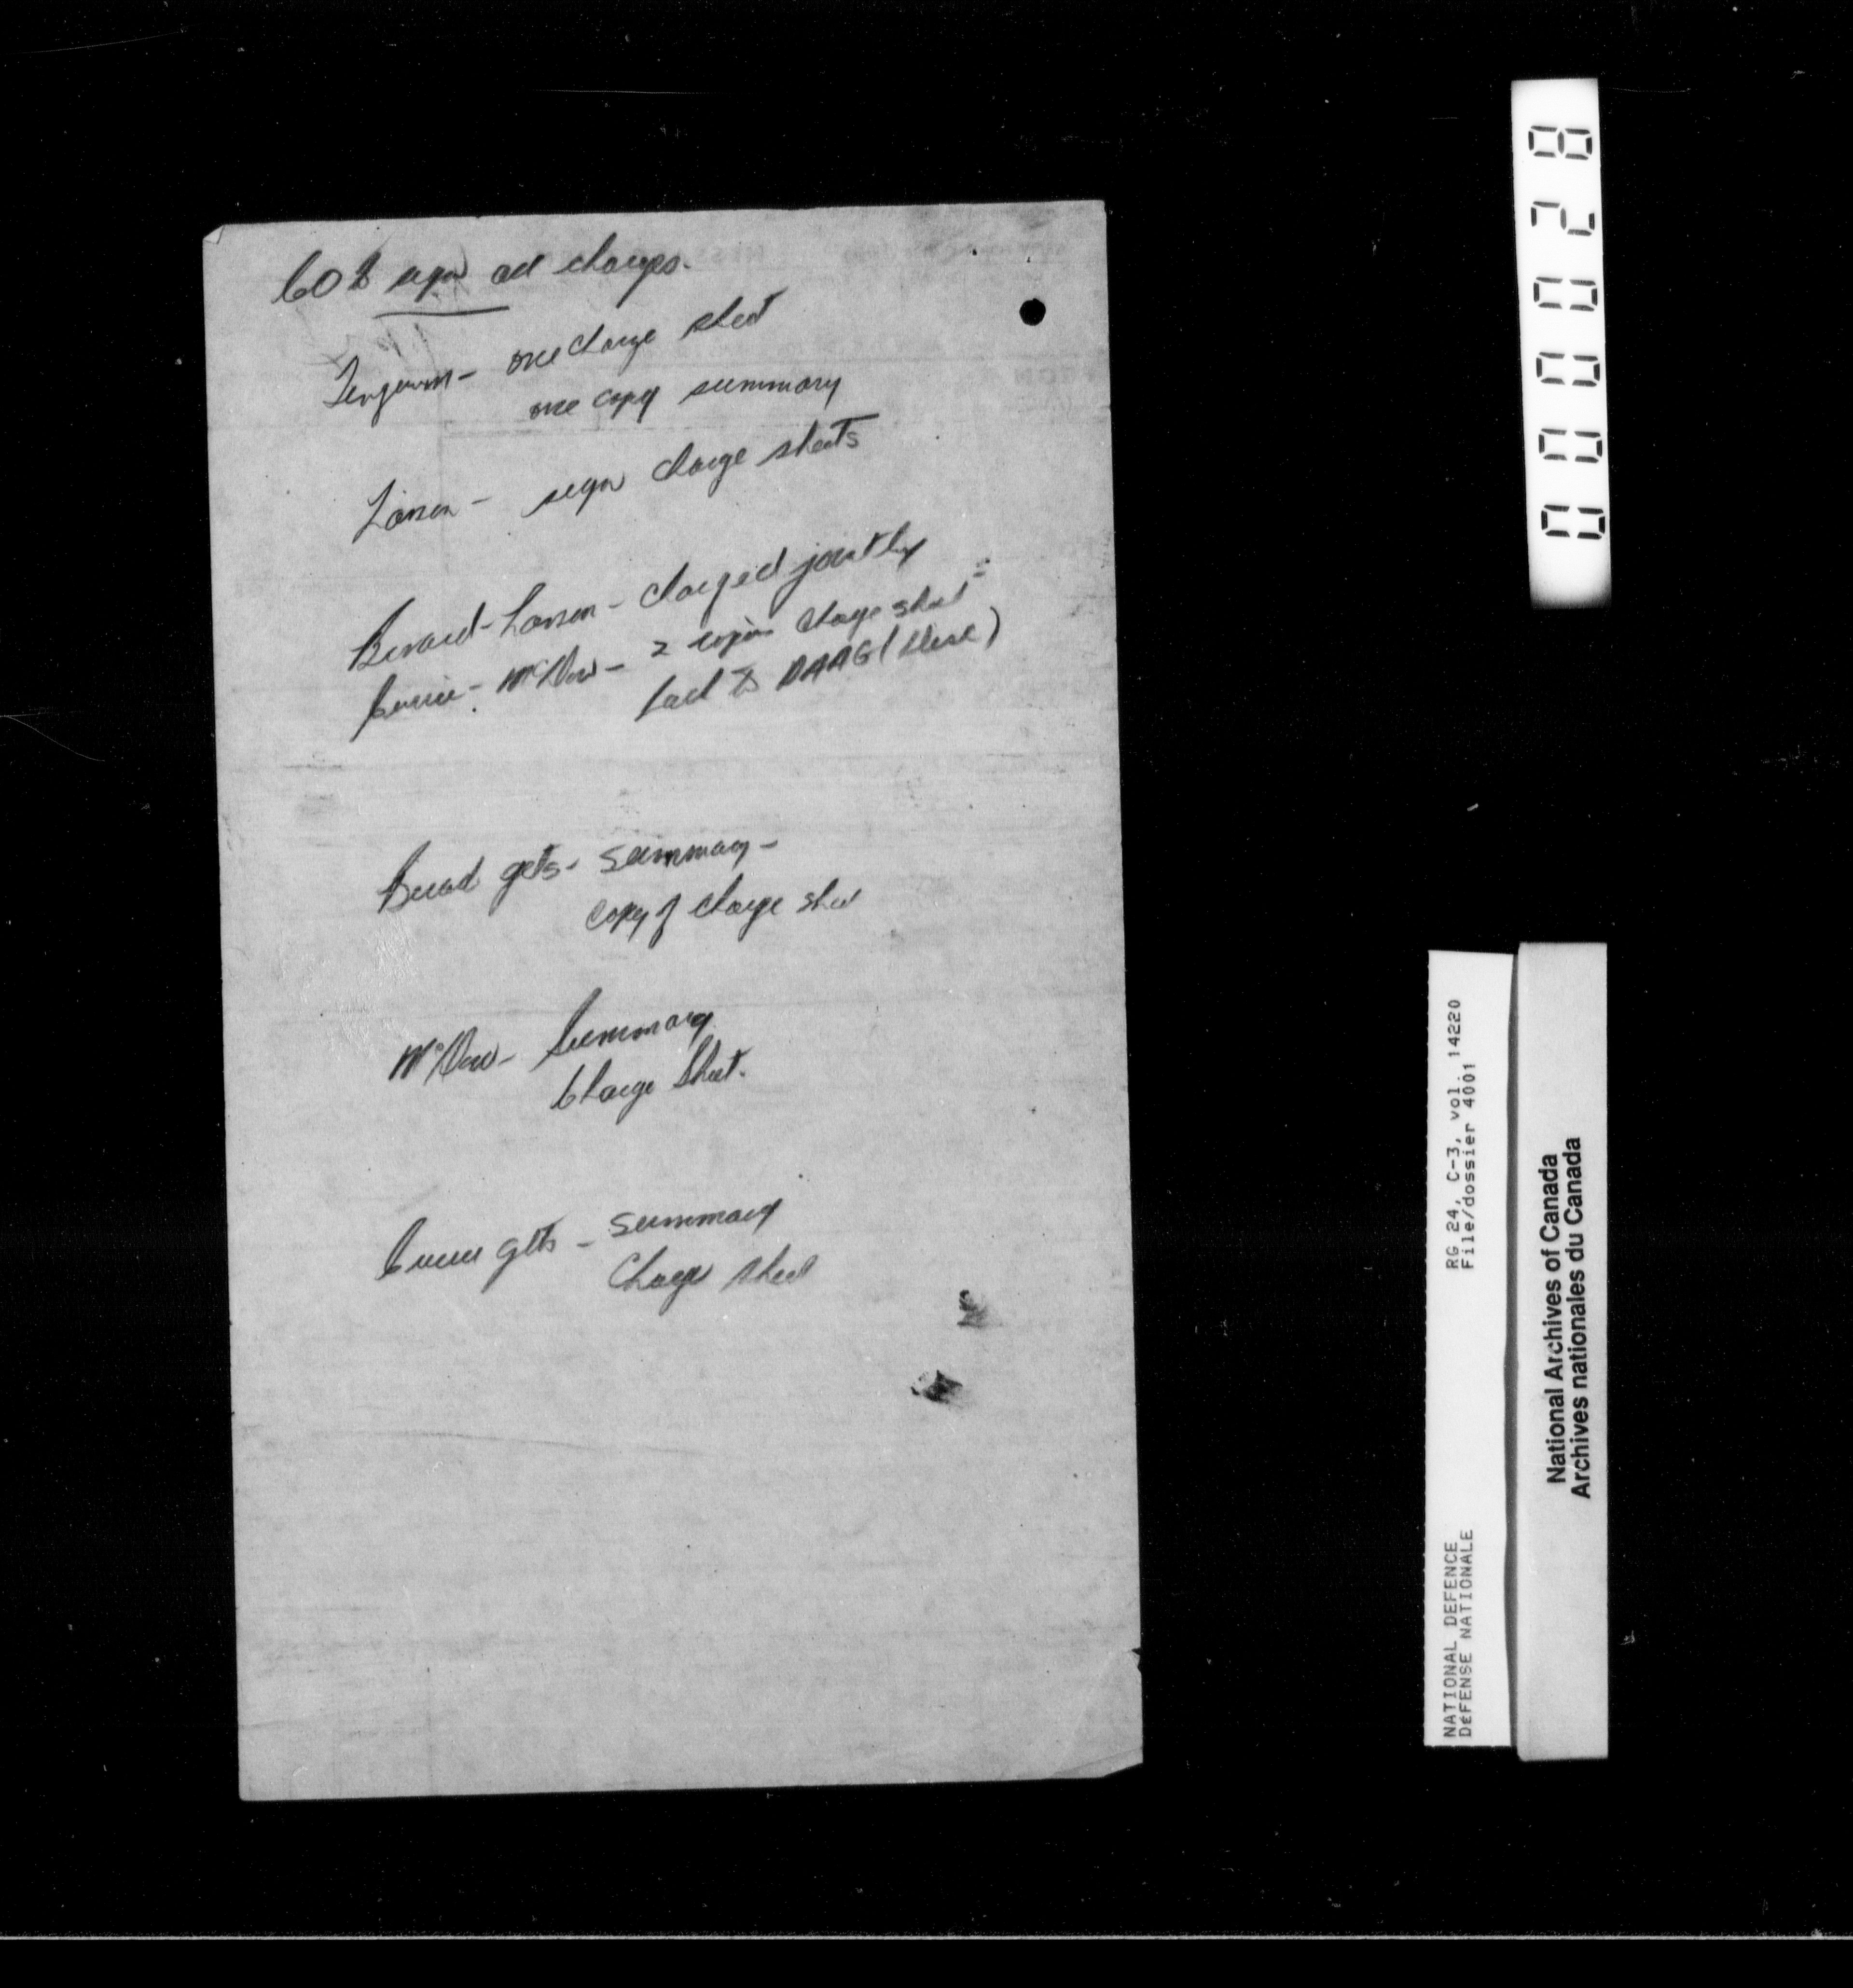 CO to sign all charges.
Ferguson - one charge sheet
one copy summary
Larson - sign charge sheets
Berard - Larson - charged jointly
Currie - McDow - 2 copies charge sheet
back to DAAG (
Berard gets - summary -
copy of charge sheet
McDow - Summary
Charge Sheet.
Currie gets - summary
Charge sheet
000028
RG 24, C-3, vol. 14220
File/dossier 4001
NATIONAL DEFENCE
DÉFENSE NATIONALE
National Archives of Canada
Archives nationales du Canada